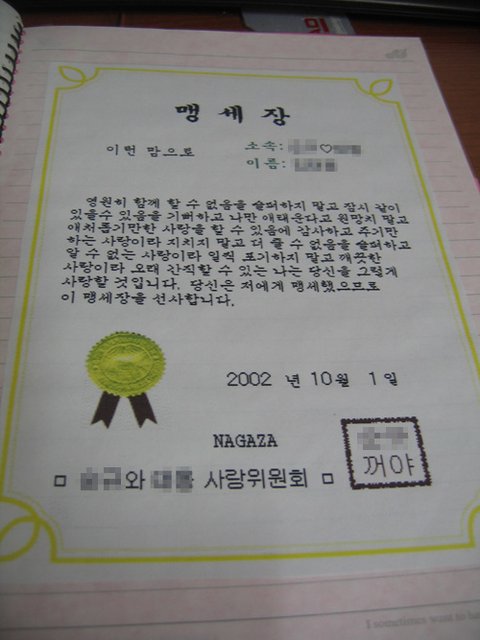 맹세장
이런 맘으로
소속: ♡
이름:
영원히 함께 할 수 없음을 슬퍼하지 말고 잠시 같이
있을수 있음을 기뻐하고 나만 애태운다고 원망치 말고
애처롭기만한 사랑을 할 수 있음에 감사하고 주기만
하는 사랑이라 지치지 말고 더 줄 수 없음을 슬퍼하고
알 수 없는 사랑이라 일찍 포기하지 말고 깨끗한
사랑이라 오래 간직할 수 있는 나는 당신을 그렇게
사랑할 것입니다. 당신은 저에게 맹세했으므로
이 맹세장을 선사합니다.
2002 년 10월 1일
NAGAZA
와 사랑위원회
꺼야
I sometimes want to